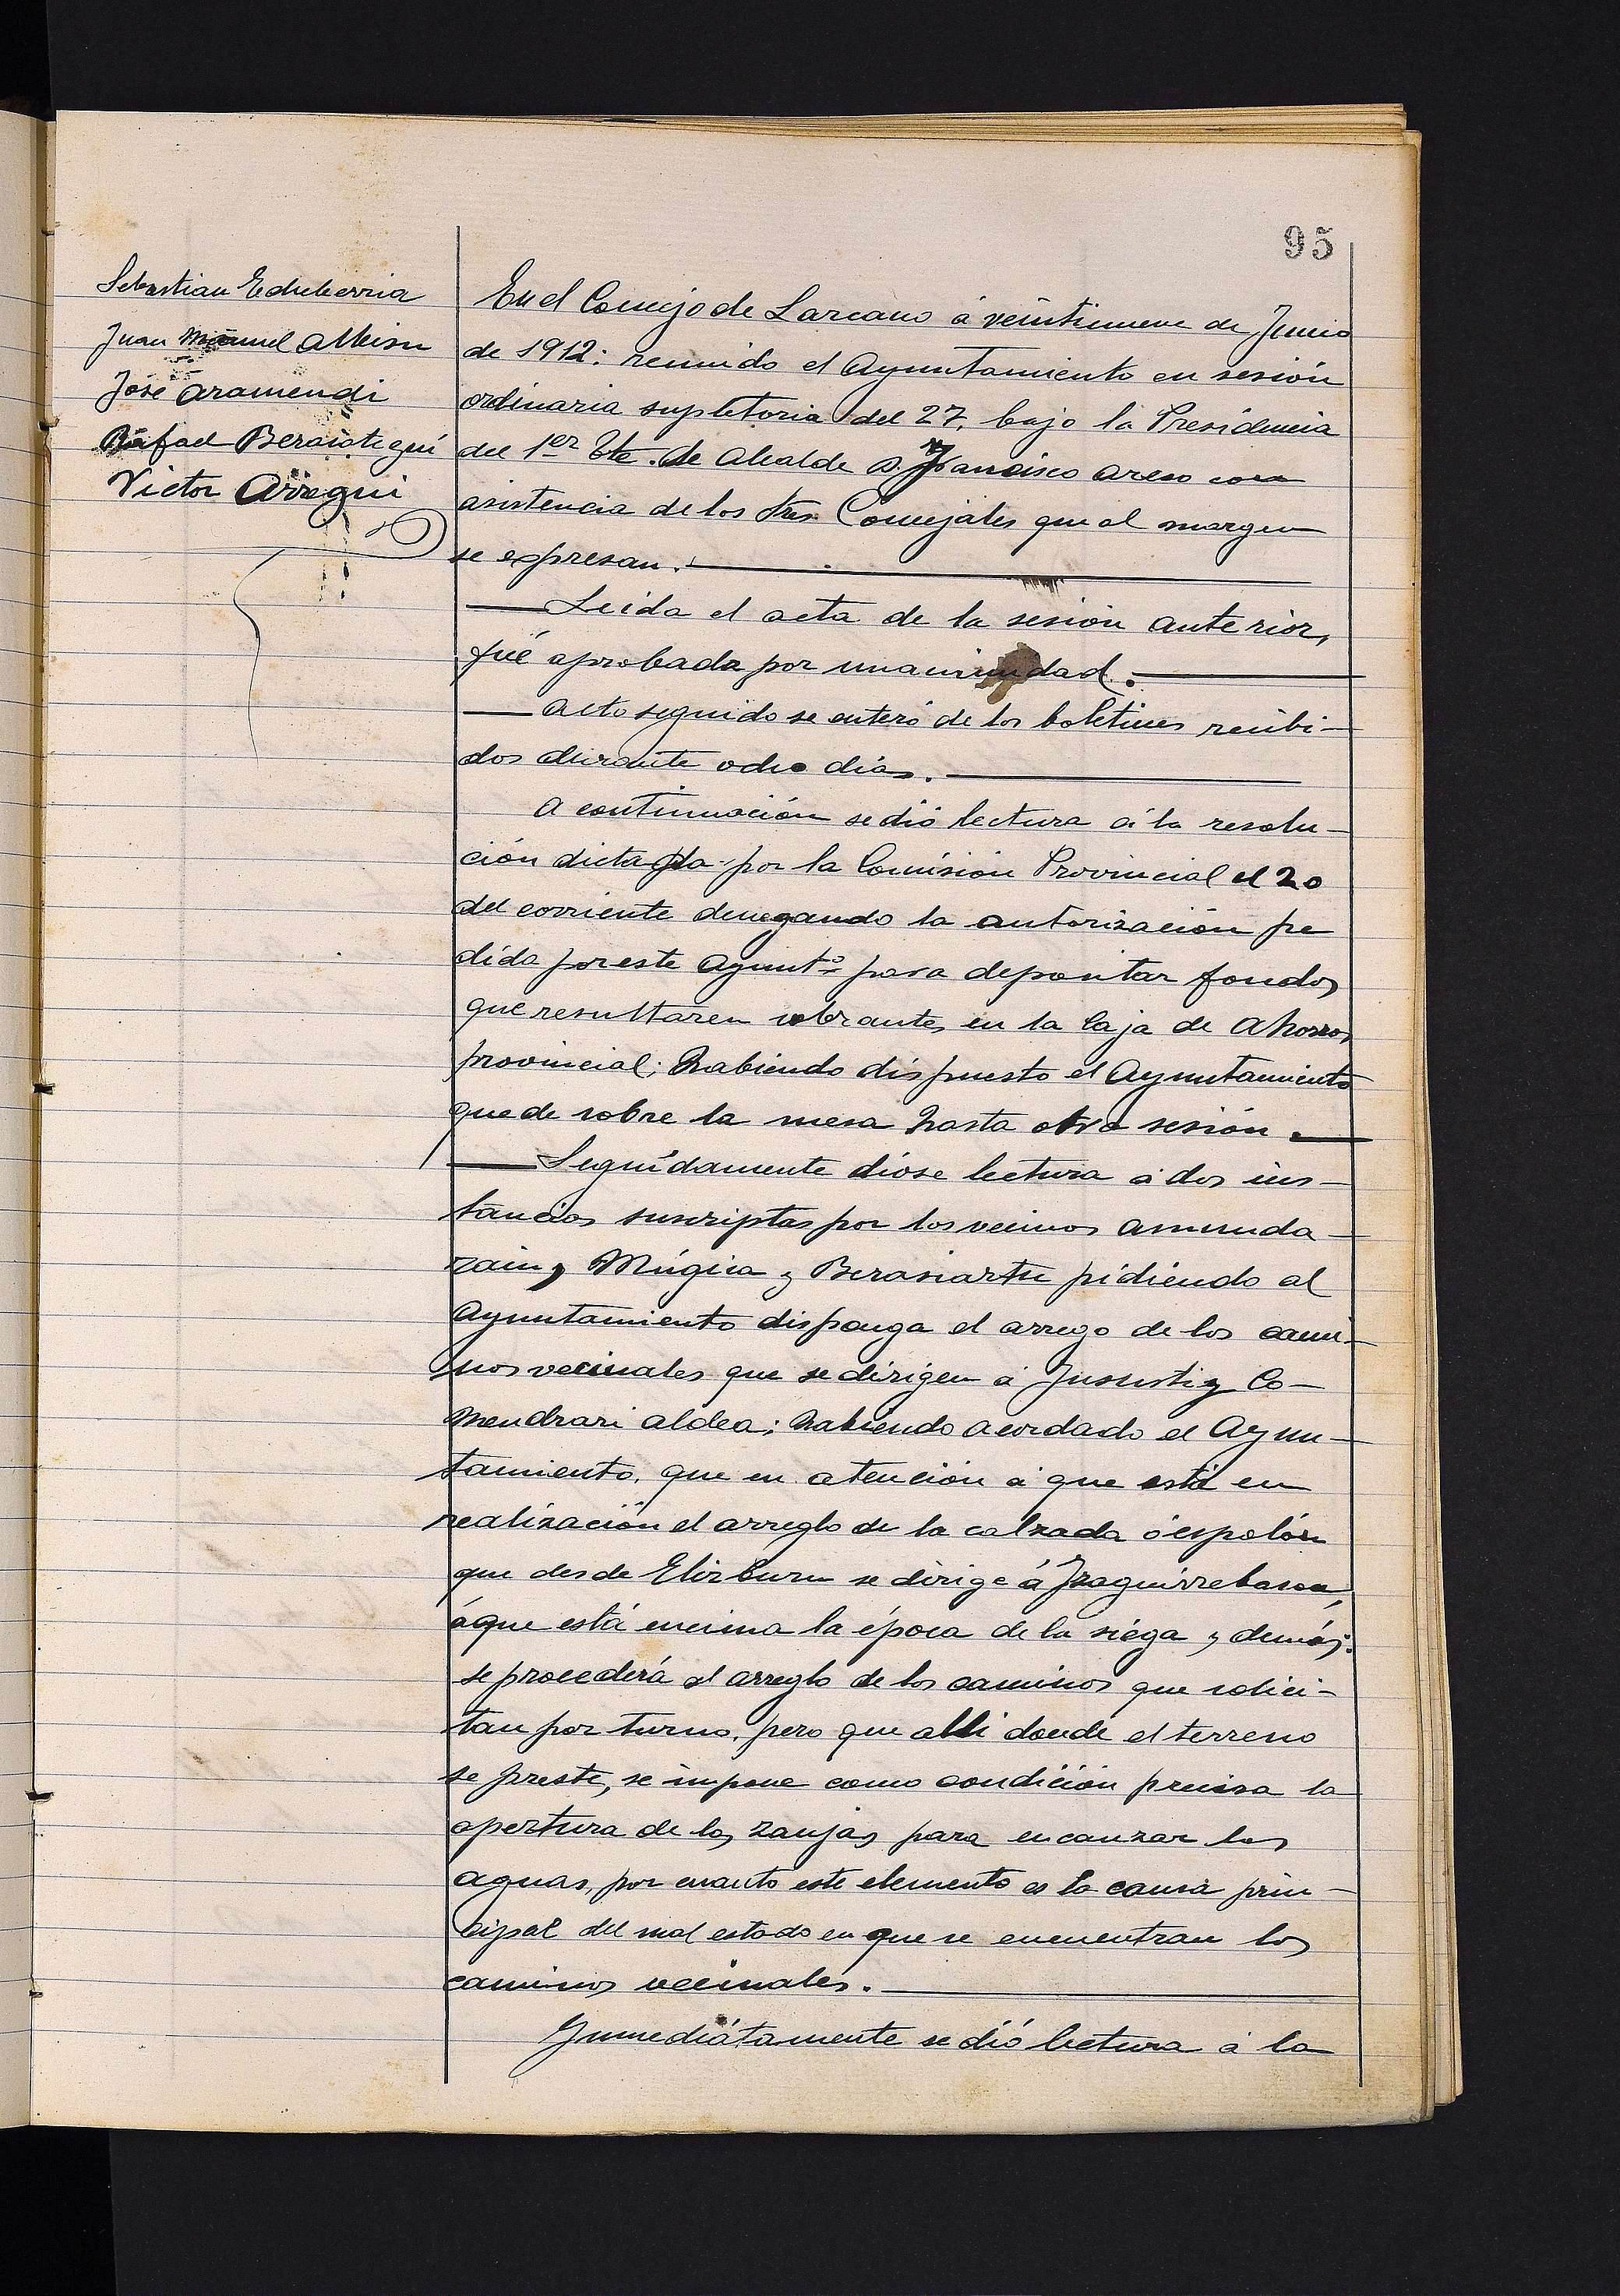 95
Sebastian Echeberria
Juan Manuel Albisu
José Aramendi
Rafael Berasategui
Victor Arregui
En el Concejo de Lazcano á veintinueve de Junio
de 1912: reunido el Ayuntamiento en sesión
ordinaria supletoria del 27, bajo la Presidencia
del 1er Tte. de Alcalde D. Francisco Areso con
asistencia de los Sres. Concejales que al margen
se expresan.
Leida el acta de la sesión anterior,
fué aprobada por unanimidad.
Acto seguido se enteró de los boletines recibi-
dos durante ocho dias.
A continuación se dió lectura á la resolu-
ción dictada por la Comisión Provincial el 20
del corriente denegando la autorización pe
dida por este Ayuntº para depositar fondos
que resultaren sobrantes en la Caja de Ahorros
provincial; habiendo dispuesto el Ayuntamiento
quede sobre la mesa hasta otra sesión.
Seguidamente dióse lectura á dos ins-
tancias suscriptas por los vecinos Amunda-
rain, Múgica y Berasiartu pidiendo al
Ayuntamiento disponga el arrego de los cami-
nos vecinales que se dirigen á Jususti y Co-
mendrari aldea; habiendo acordado el Ayun-
tamiento, que en atención á que está en
realización el arreglo de la calzada ó espolón
que desde Elizburu se dirige á Izaguirrebasoa,
á que está encima la época de la siega y demás;
se procederá al arreglo de los caminos que solici-
tan por turno, pero que alli donde el terreno
se preste, se impone como condición precisa la
apertura de las zanjas para encauzar las
aguas, por cuanto este elemento es la causa prin-
cipal del mal estado en que se encuentran los
caminos vecinales.
Inmediátamente se dió lectura á la